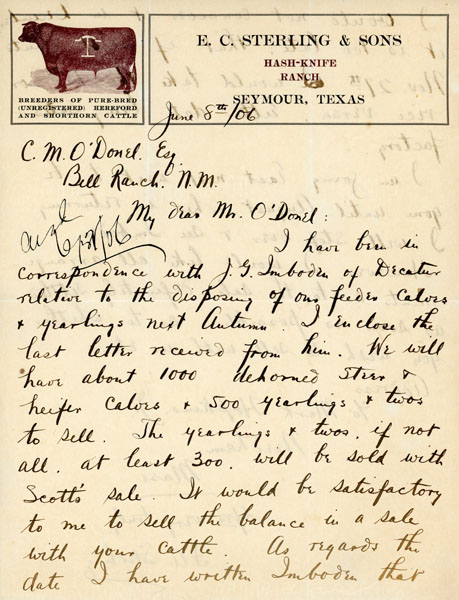 E. C. STERLING & SONS
HASH-KNIFE
RANCH
SEYMOUR, TEXAS
BREEDERS OF PURE-BRED
(UNREGISTERED) HEREFORD
AND SHORTHORN CATTLE
June 8th/06
C. M. O'Donel. Esq
Bell Ranch. N.M.
My dear Mr. O'Donel:
I have been in
correspondence with J. G. Imboden of Decatur
relative to the disposing of our feeder calves
& yearlings next Autumn I enclose the
last letter received from him. We will
have about 1000 dehorned steer &
heifer calves & 500 yearlings & twos
to sell. The yearlings & twos, if not
all, at least 300. will be sold with
Scott's sale It would be satisfactory
to me to sell the balance in a sale
with your cattle. As regards the
date I have written Imboden that